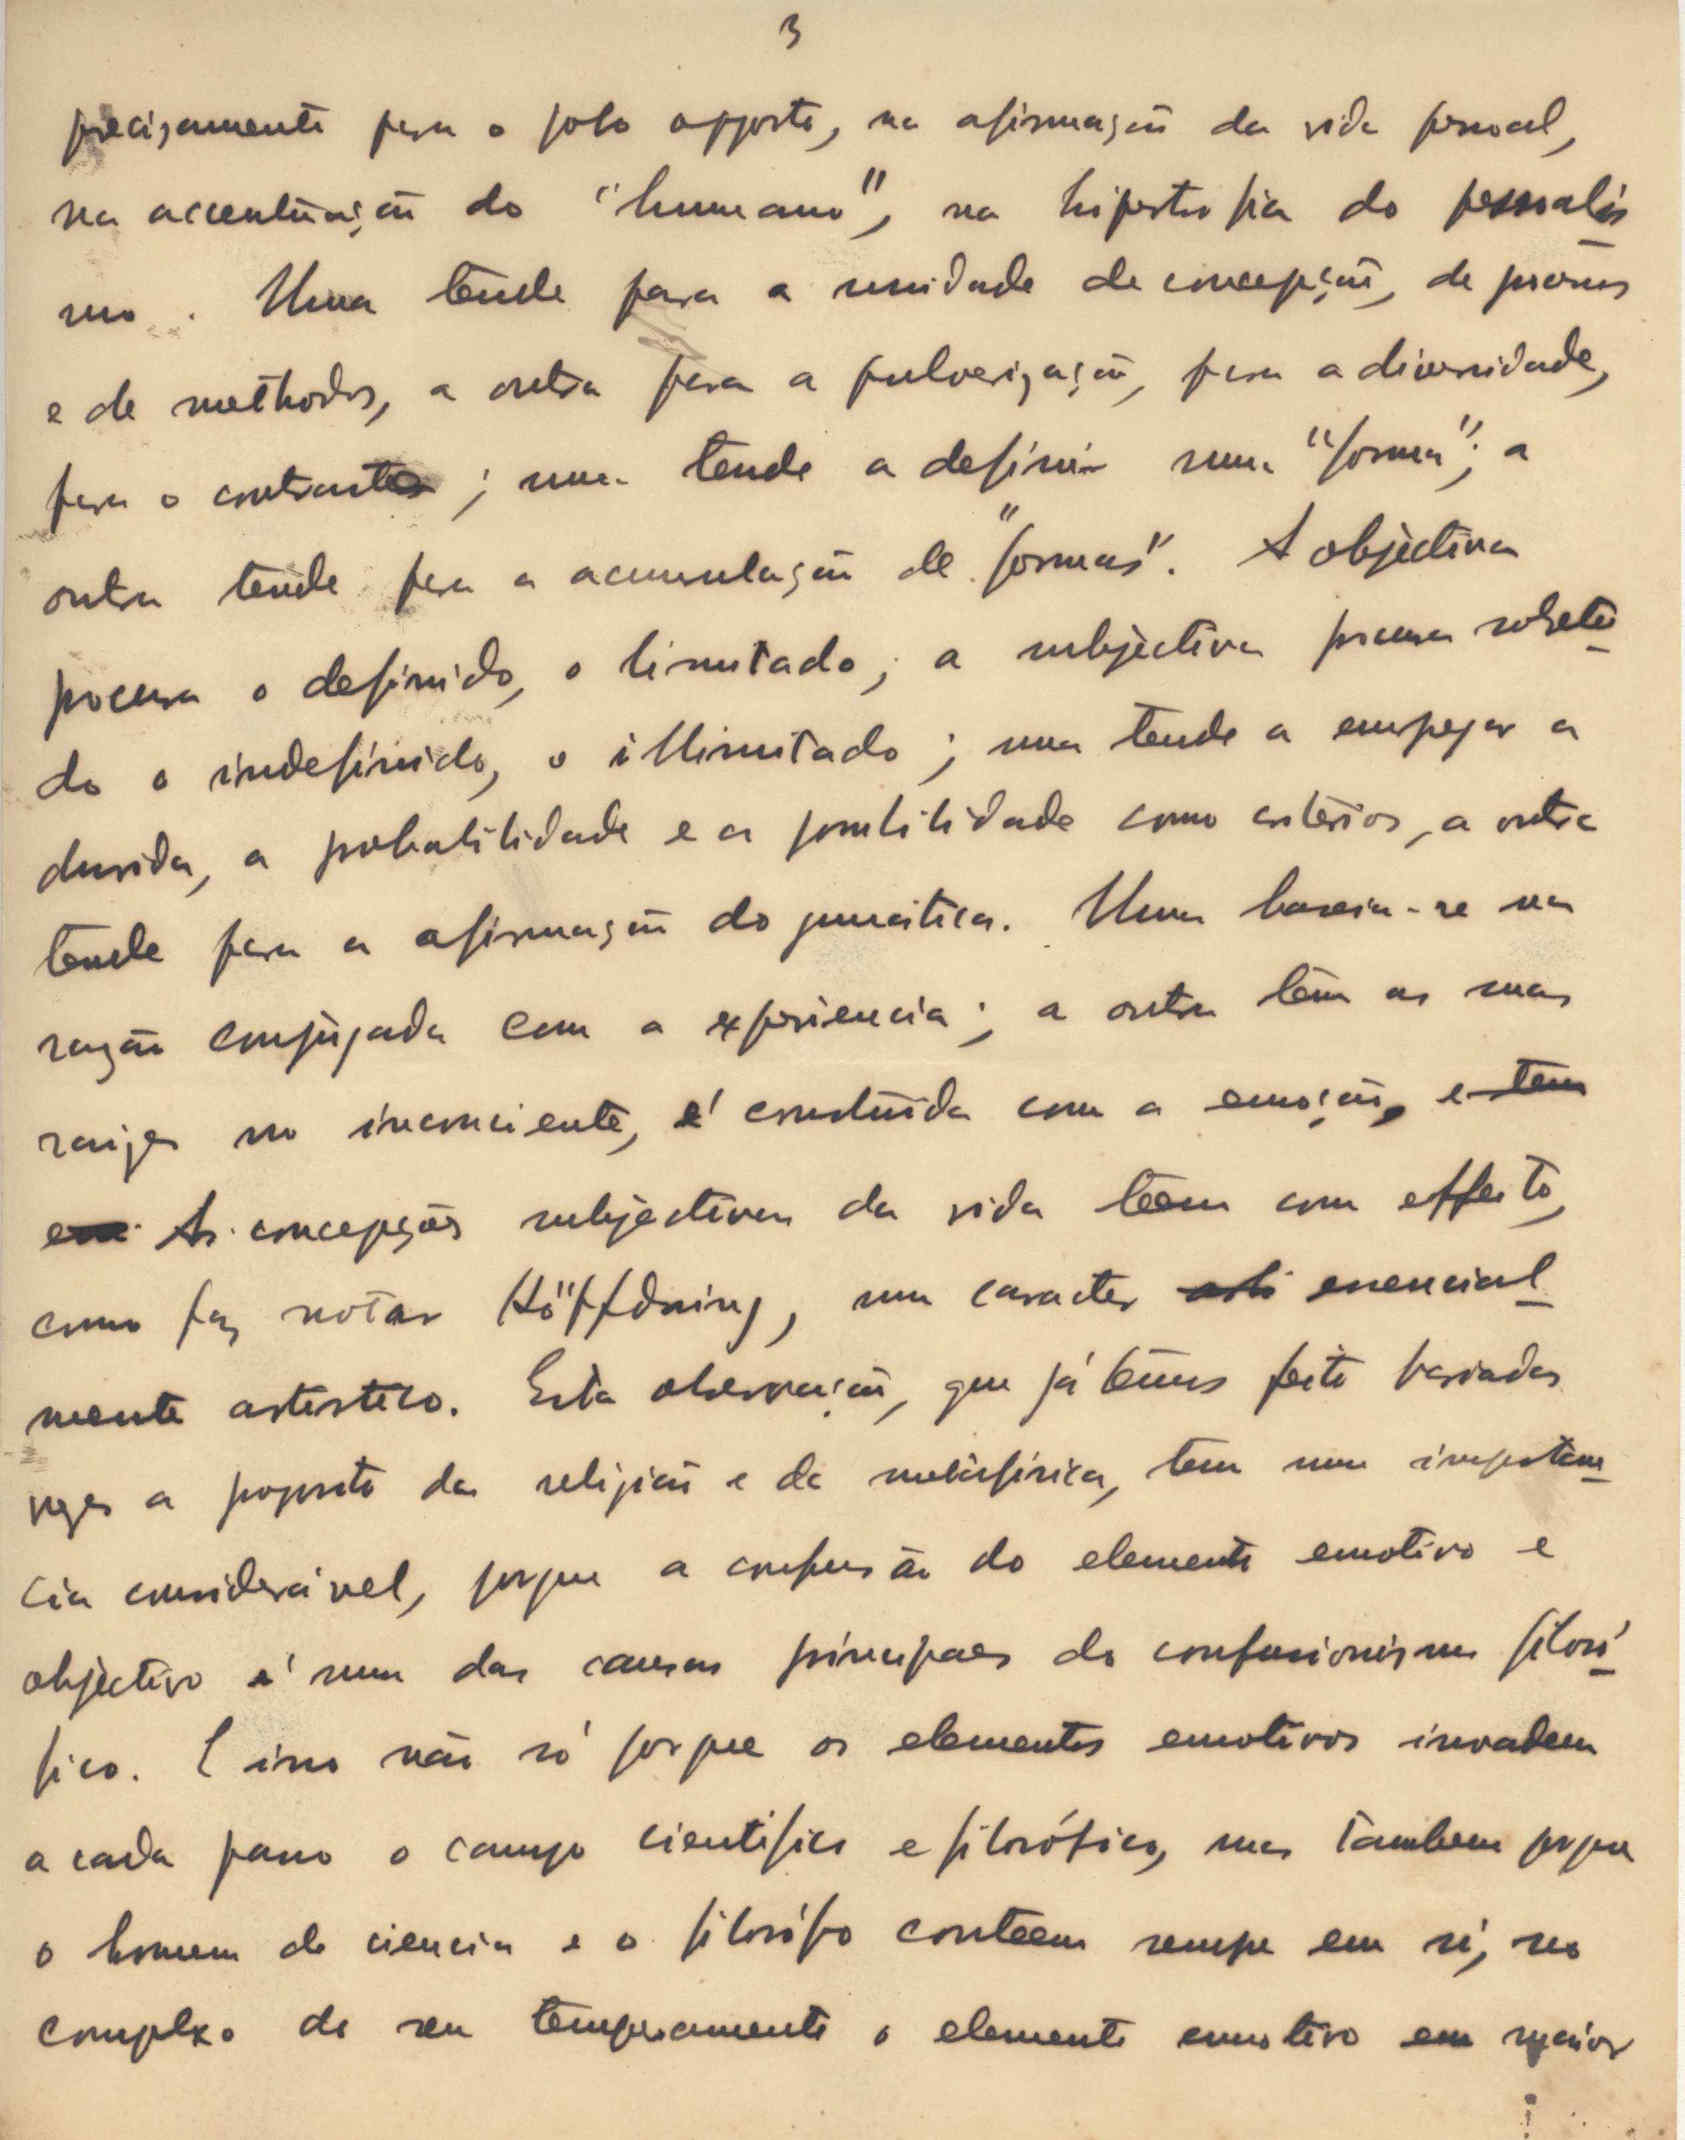 3
precisamente para o polo opposto, na afirmação da vida pessoal,
na accentuação do "humano", na hipertrofia do pessoalis
mo. Uma tende para a unidade de concepção, de
e de methodos, a outra para a pulverização, para a diversidade,
para o contraste; uma tende a definir uma "forma"; a
outra tende para a acumulação de "formas". A objectiva
procura o definido, o limitado; a subjectiva procura sobretu
do o indefinido, o illimitado; uma tende a empregar a
duvida, a probabilidade e a possibilidade como critérios, a outra
tende para a afirmação dogmatica. Uma baseia-se na
razão conjugada com a experiencia; a outra têm as suas
raizes no inconsciente, é construida com a emoção, e tem
em As concepções subjectivas da vida teem com effeito,
como faz notar Höffdning, um caracter essencial
mente artistico. Esta observação, que já temos feito variadas
vezes a proposito da religião e da metafisica, tem uma importan
cia consideravel, porque a confusão do elemento emotivo e
objectivo é uma das causas principaes do confusionismo filosó
fico. E isso não só porque os elementos emotivos invadem
a cada passo o campo cientifico e filosófico, mas tambem porque
o homem de ciencia e o filosófo conteem sempre em si, no
complexo do seu temperamento o elemento emotivo em maior